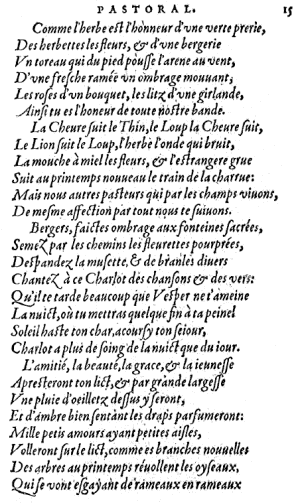 PASTORAL. 15
Comme l'herbe est l'hõneur d'vne verte prerie,
Des herbettes les fleurs, & d'vne bergerie
Vn toreau qui du pied pousse l'arene au vent,
D'vne fresche ramée vn ombrage mouuant,
Les roses d'vn bouquet, les litz d'vne girlande,
Ainsi tu es l'honeur de toute nostre bande.
La Cheure suit le Thin, le Loup la Cheure suit,
Le Lion suit le Loup, l'herbe l'onde qui bruit,
La mouche à miel les fleurs, & l'estrangere grue
Suit au printemps nouueau le train de la charrue:
Mais nous autres pasteurs qui par les champs viuons,
De mesme affection par tout nous te suiuons.
Bergers, faictes ombrage aux fonteines sacrées,
Semez par les chemins les fleurettes pourprées,
Despandez la musette, & de branles diuers
Chantez à ce Charlot des chansons & des vers:
Qu'il te tarde beaucoup que Vesper ne t'ameine
La nuict, où tu mettras quelque fin à ta peine!
Soleil haste ton char, acoursy ton seiour,
Charlot a plus de soing de la nuict que du iour.
L'amitié, la beauté, la grace, & la ieunesse
Apresteront ton lict, & par grande largesse
Vne pluie d'oeilletz dessus y seront,
Et d'ambre bien sentant les draps parfumeront:
Mille petis amours ayant petites aisles,
Volleront sur le lict, comme es branches nouuelles
Des arbres au printemps reuollent les oyseaux,
Qui se vont esgayant de rameaux en rameaux